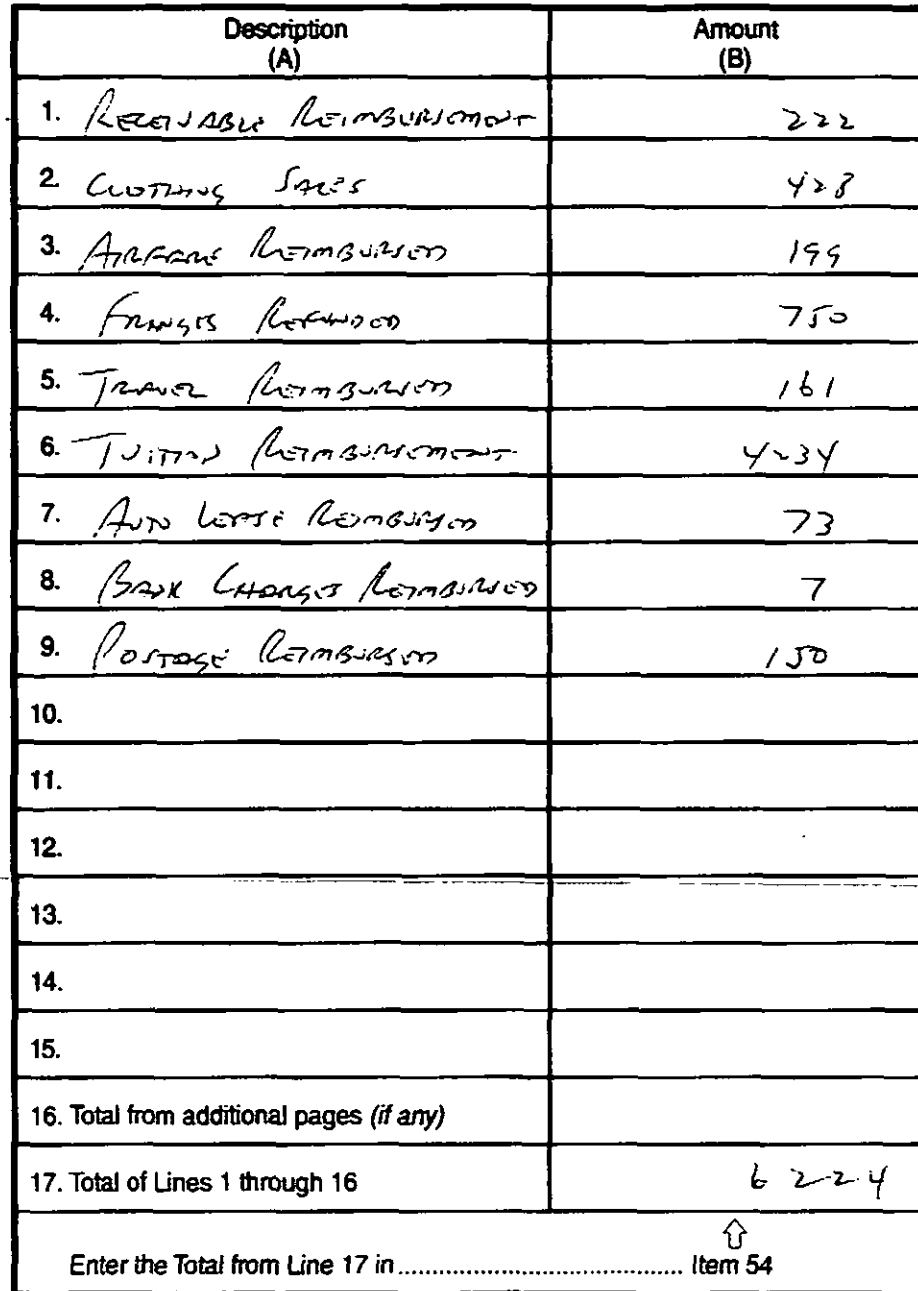 Description
(A)
Amount
(B)
1. RECEIVABLE REIMBURSEMENT 222
2. CLOTHING SALES 428
3. AIRFARE REIMBURSED 199
4. FRINGES REFUNDED 750
5. TRAVEL REIMBURSED 161
6. TUITION REIMBURSEMENT 4234
7. AUTO LEASE REIMBURSED 73
8. BANK CHARGES REIMBURSED 7
9. POSTAGE REIMBURSED 150
10.
11.
12.
13.
14.
15.
16. Total from additional pages (if any)
17. Total of Lines 1 through 16 6224
Enter the Total from Line 17 in ........................................ Item 54